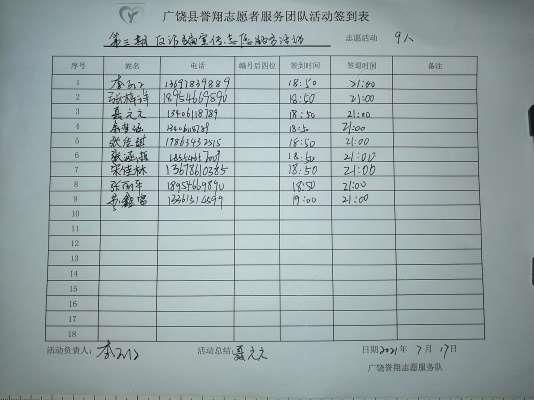 广饶县誉翔志愿者服务团队活动签到表
第三期 反诈骗宣传志愿服务活动 志愿活动 9人
序号 姓名 电话 编号后四位 签到时间 签退时间 备注
1 13697839889 18:50 21:00
2 18954669890 18:50 21:00
3 聂元元 13406118789 18:50 21:00
4 18:50 21:00
5 17863432515 18:50 21:00
6 18:50 21:00
7 宋佳林 13678610285 18:50 21:00
8 张雨年 18954669890 18:50 21:00
9 13361514599 19:00 21:00
10
11
12
13
14
15
16
17
18
活动负责人： 活动总结：聂元元 日期2021年 7月 17日
广饶誉翔志愿服务队